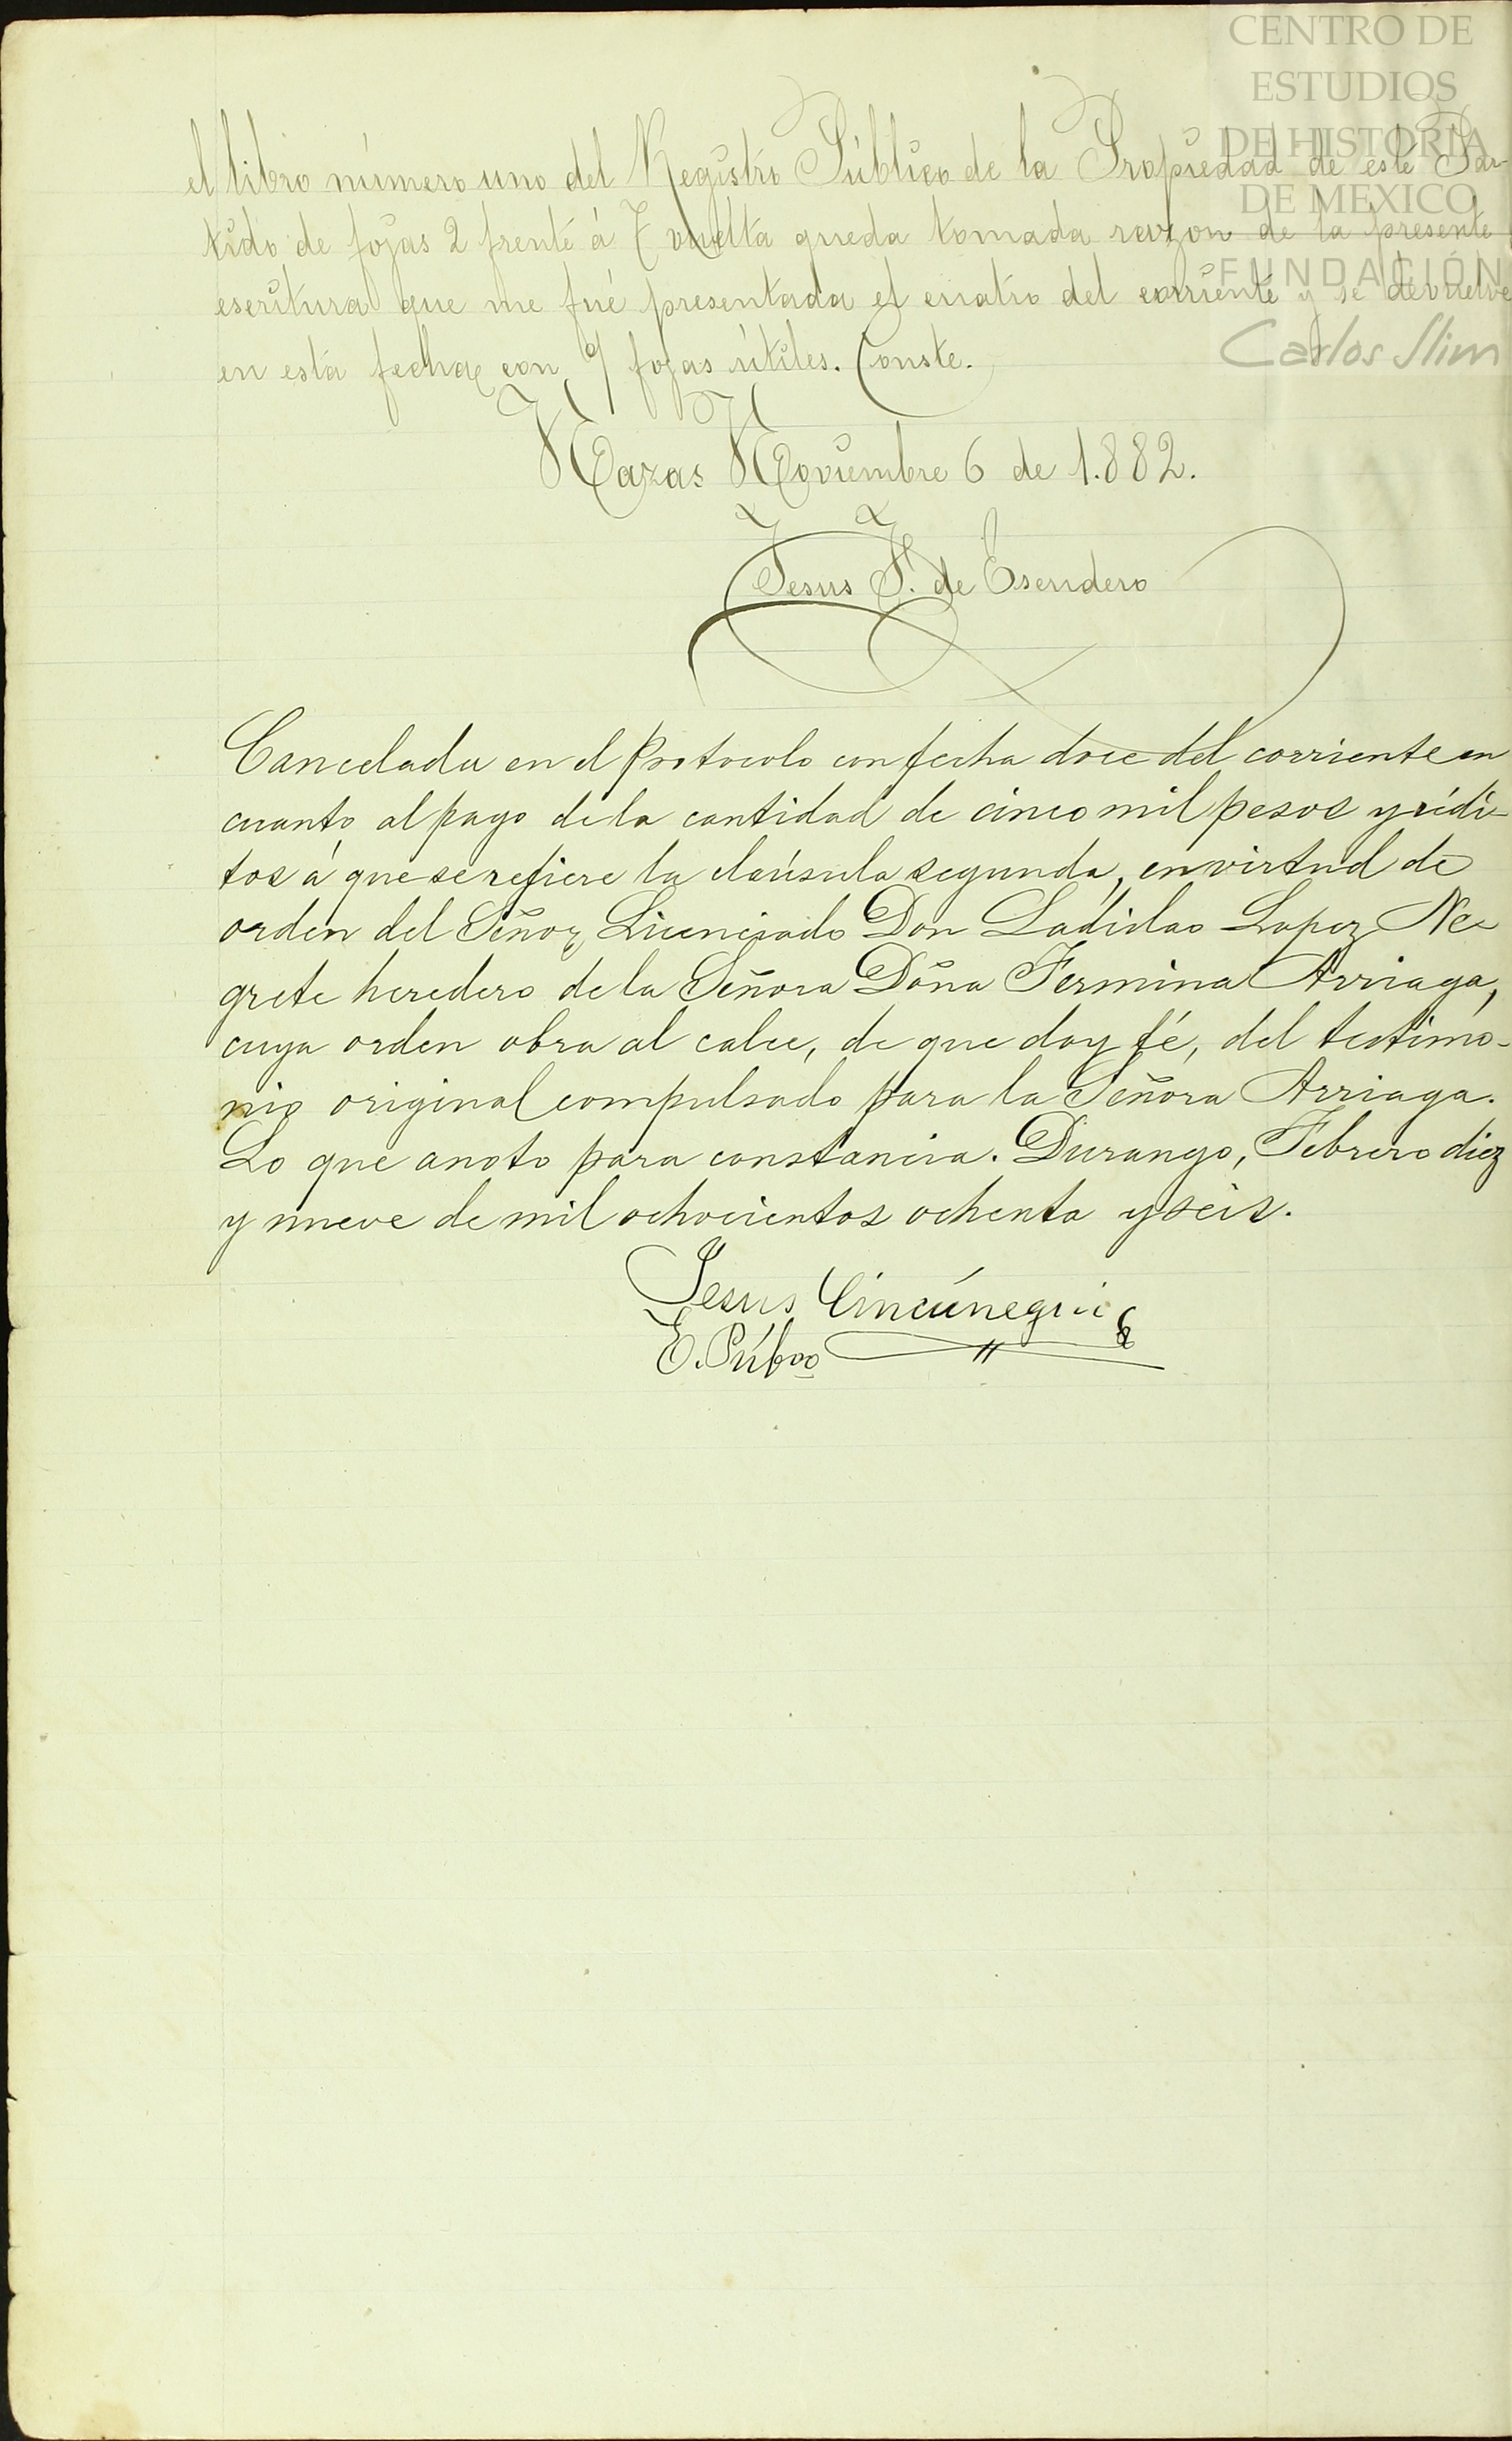 CENTRO DE
ESTUDIOS
DE HISTORIA
DE MEXICO
FUNDACIÓN
Carlos Slim
el libro número uno del Registro Público de la Propiedad de este Par-
tido de fojas 2 frente á 7 vuelta queda tomada razon de la presente
escritura que me fué presentada el cuatro del corriente y se devuelve
en esta fecha con 9 fojas útiles. Conste.
Nazas Noviembre 6 de 1.882.
Jesus F. de Escudero
Cancelada en el Protocolo con fecha doce del corriente en
cuanto al pago de la cantidad de cinco mil pesos y rédi-
tos á que se refiere la claúsula segunda, en virtud de
orden del Señor Licenciado Don Ladislao Lopez Ne-
grete heredero de la Señora Doña Fermina Arriaga,
cuya orden obra al calce, de que doy fé, del testimo-
nio original compulsado para la Señora Arriaga.
Lo que anoto para constancia. Durango, Febrero diez
y nueve de mil ochocientos ochenta y seis.
Jesus Cincúnegui
E. Púbco